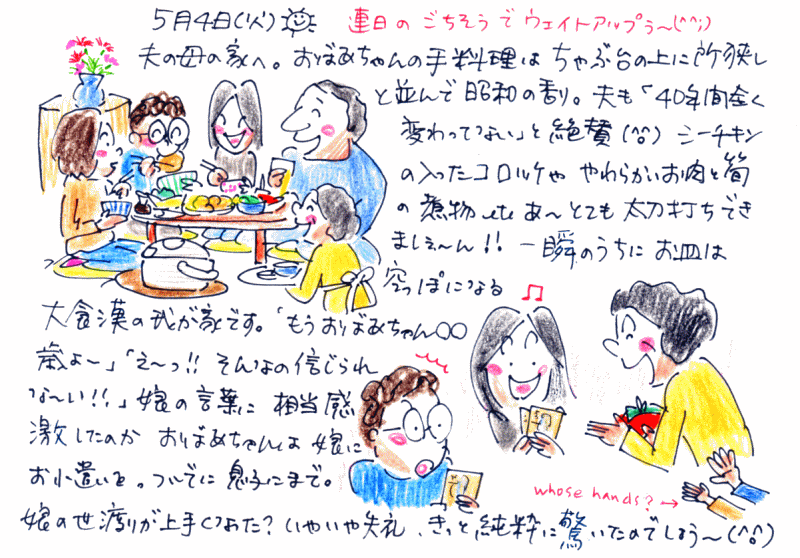 5月4日(火) 連日のごちそうでウェイトアップぅ〜(^^;)
夫の母の家へ。おばあちゃんの手料理はちゃぶ台の上に所狭し
と並んで昭和の香り。夫も「40年間全く
変わってない」と絶賛(^o^) シーチキン
の入ったコロッケや やわらかいお肉と筍
の煮物 etc あ〜とても 太刀打ちでき
ましぇ〜ん!! 一瞬のうちにお皿は
空っぽになる
大食漢の我が家です。「もうおばあちゃん○○
歳よ〜」「え〜っ!! そんなの信じられ
な〜い!!」娘の言葉に 相当感
激したのか おばあちゃんは 娘に
お小遣いを。ついでに 息子にまで。
whose hands? →
娘の世渡りが上手くなった? いやいや失礼、きっと純粋に驚いたのでしょう〜(^o^)